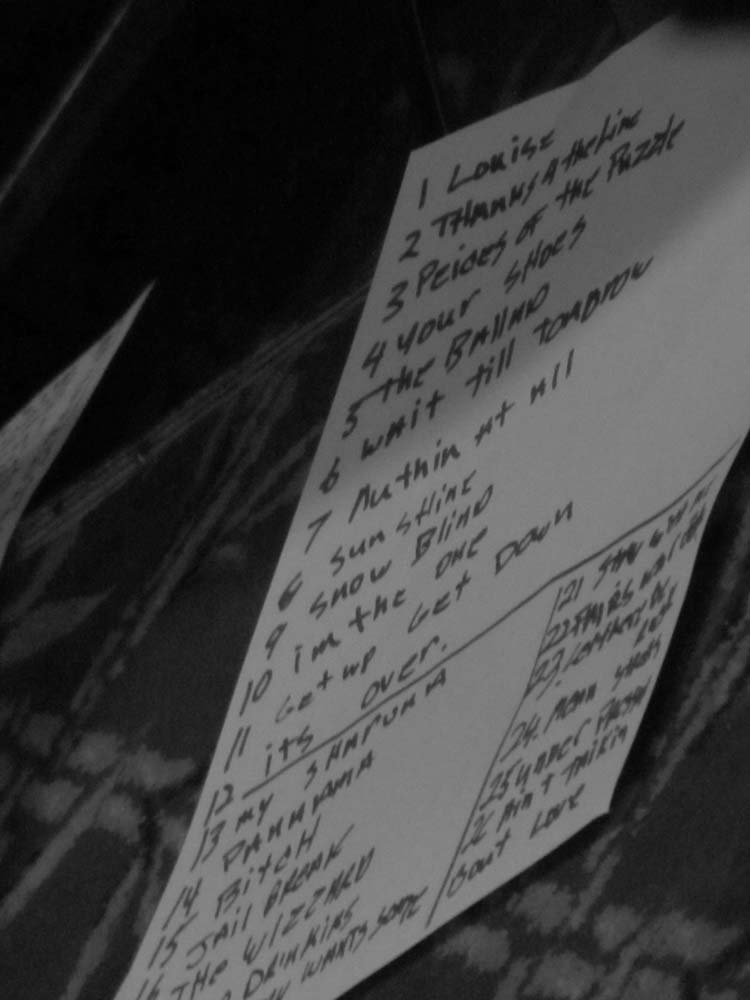 1 Louise
2 THANKS 4 the Line
3 PEICES OF the Puzzle
4 your SHOES
5 the BALLAD
6 wait till TOMORROW
7 Nuthin at All
8 Sun Shine
9 SNOW BLIND
10 im the one
11 Get up Get Down
12 its over.
13 my SHAPUNA
14 PANAMA
15 Bitch
16 JAil BREAK
THE WIZZARD
DRINKING
WANTS SOME
21
22
23.
24. MEAN
25 UNDER
26 Ain't TALKIN
Bout Love